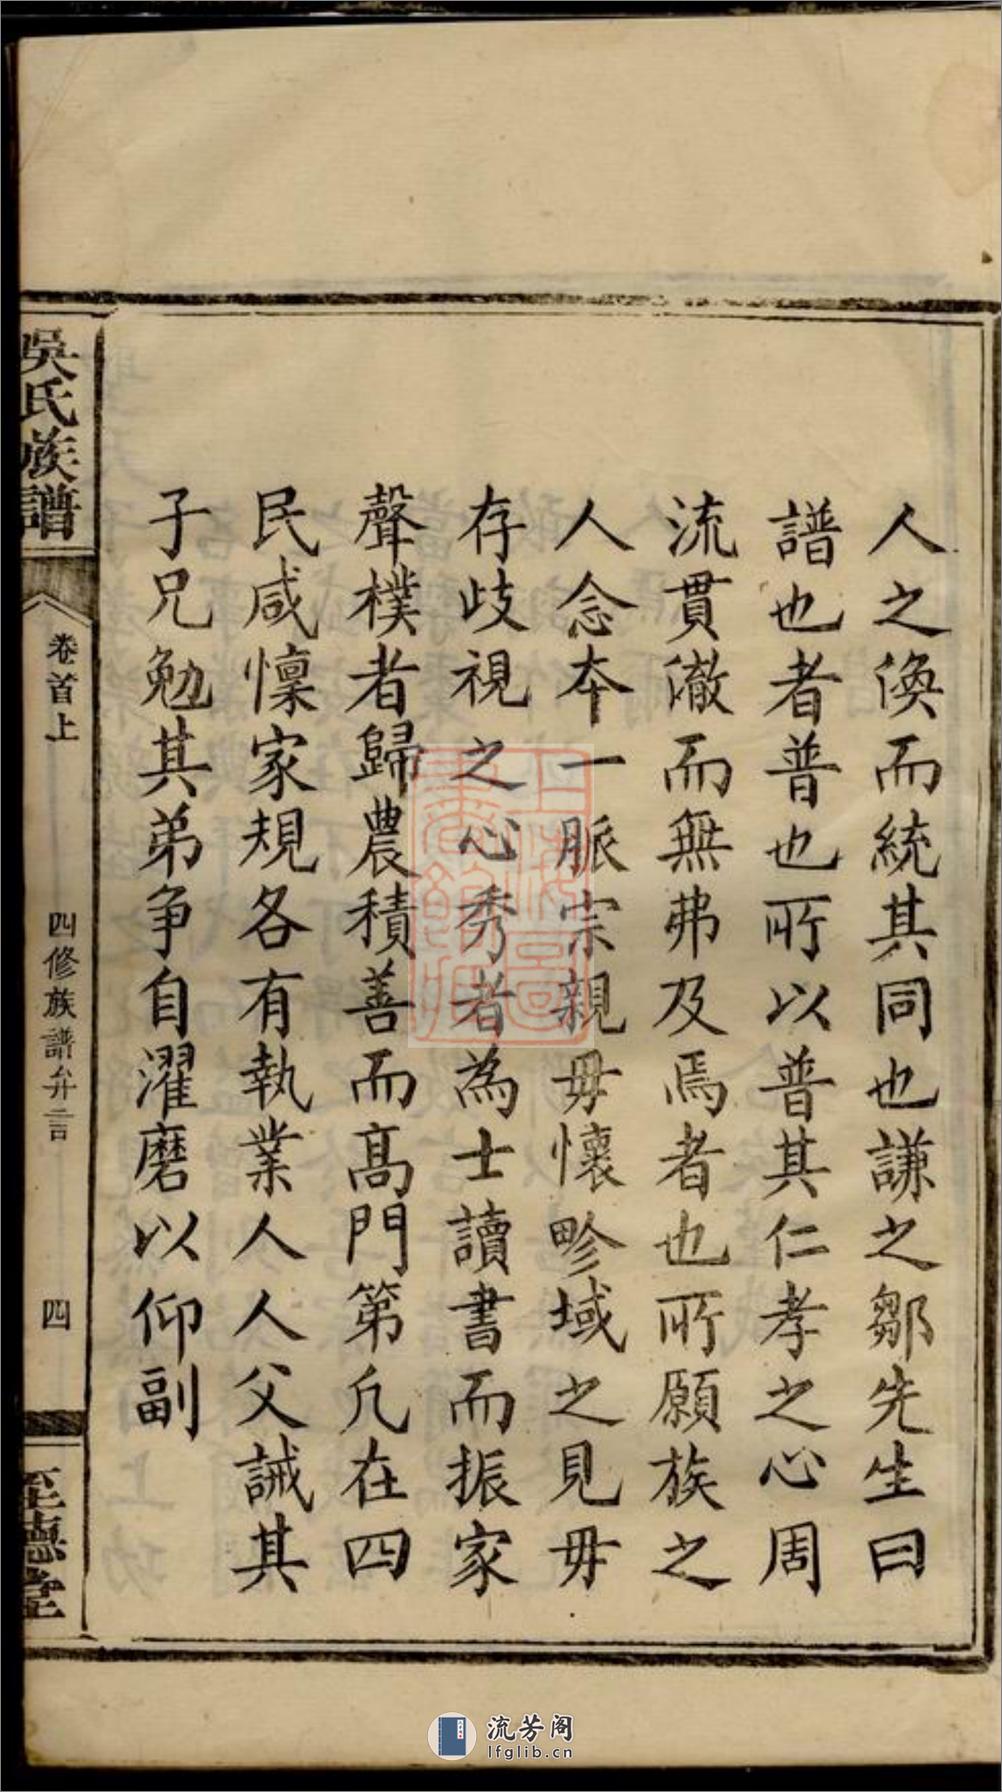 人之渙而統其同也謙之鄒先生曰
譜也者普也所以普其仁孝之心周
流貫澈而無弗及焉者也所願族之
人念本一脈宗親毋懷畛域之見毋
存歧視之心秀者為士讀書而振家
聲樸者歸農積善而髙門第凡在四
民咸懍家規各有執業人人父誡其
子兄勉其弟争自濯磨以仰副
吳氏族譜
卷首上
四修族譜弁言
四
至德堂
流芳阁
lfglib.cn